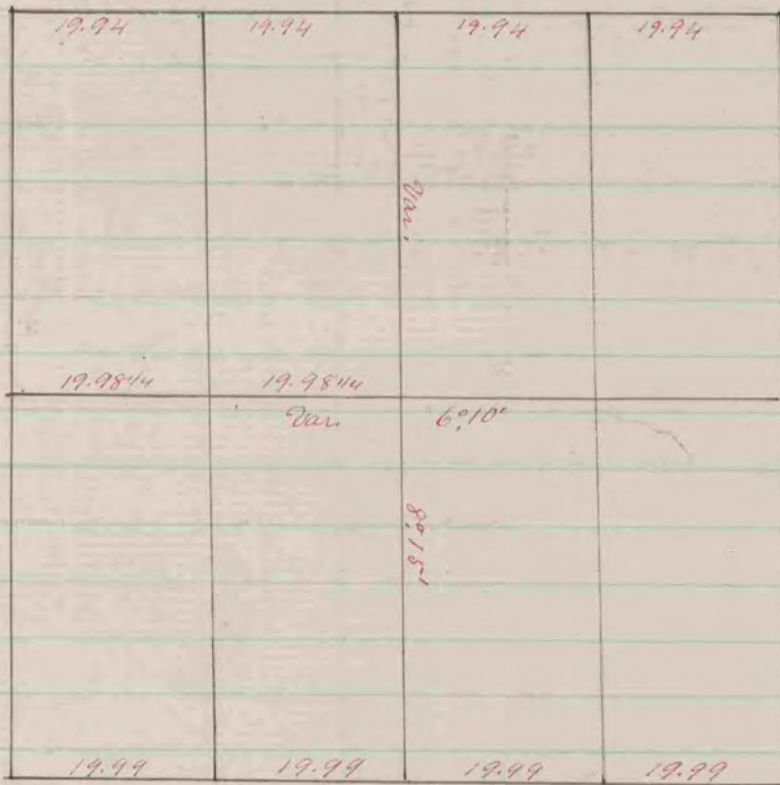 19.94 19.94 19.94 19.94
Var.
19.98 1/4 19.98 1/4
Var. 6° 10'
8° 15'
19.99 19.99 19.99 19.99